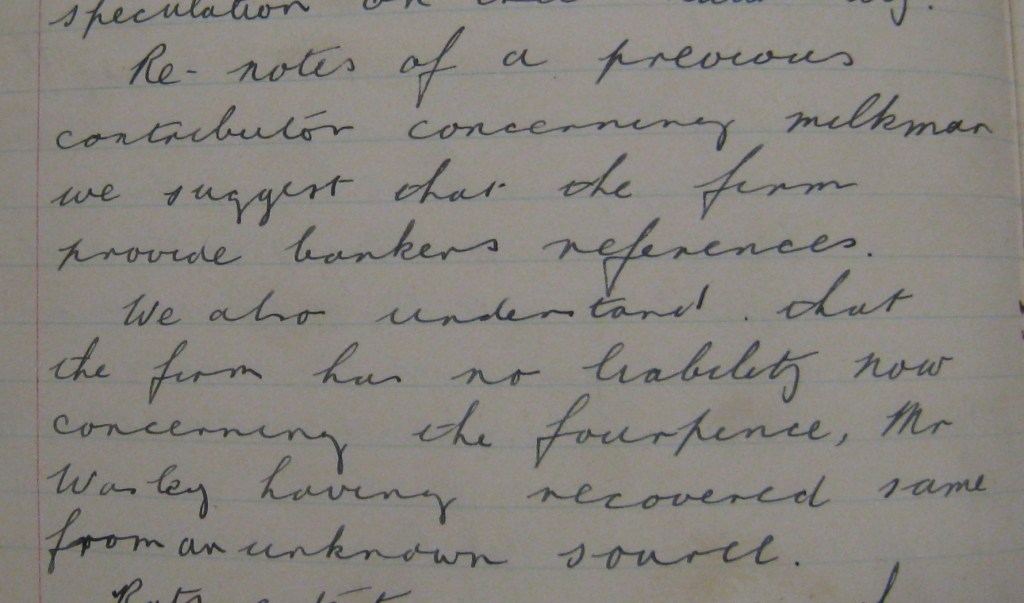 speculation on
Re- notes of a previous
contributor concerning milkman
we suggest that the firm
provide bankers references.
We also understand. that
the firm has no liability now
concerning the fourpence, Mr
Wasley having recovered same
from an unknown source.